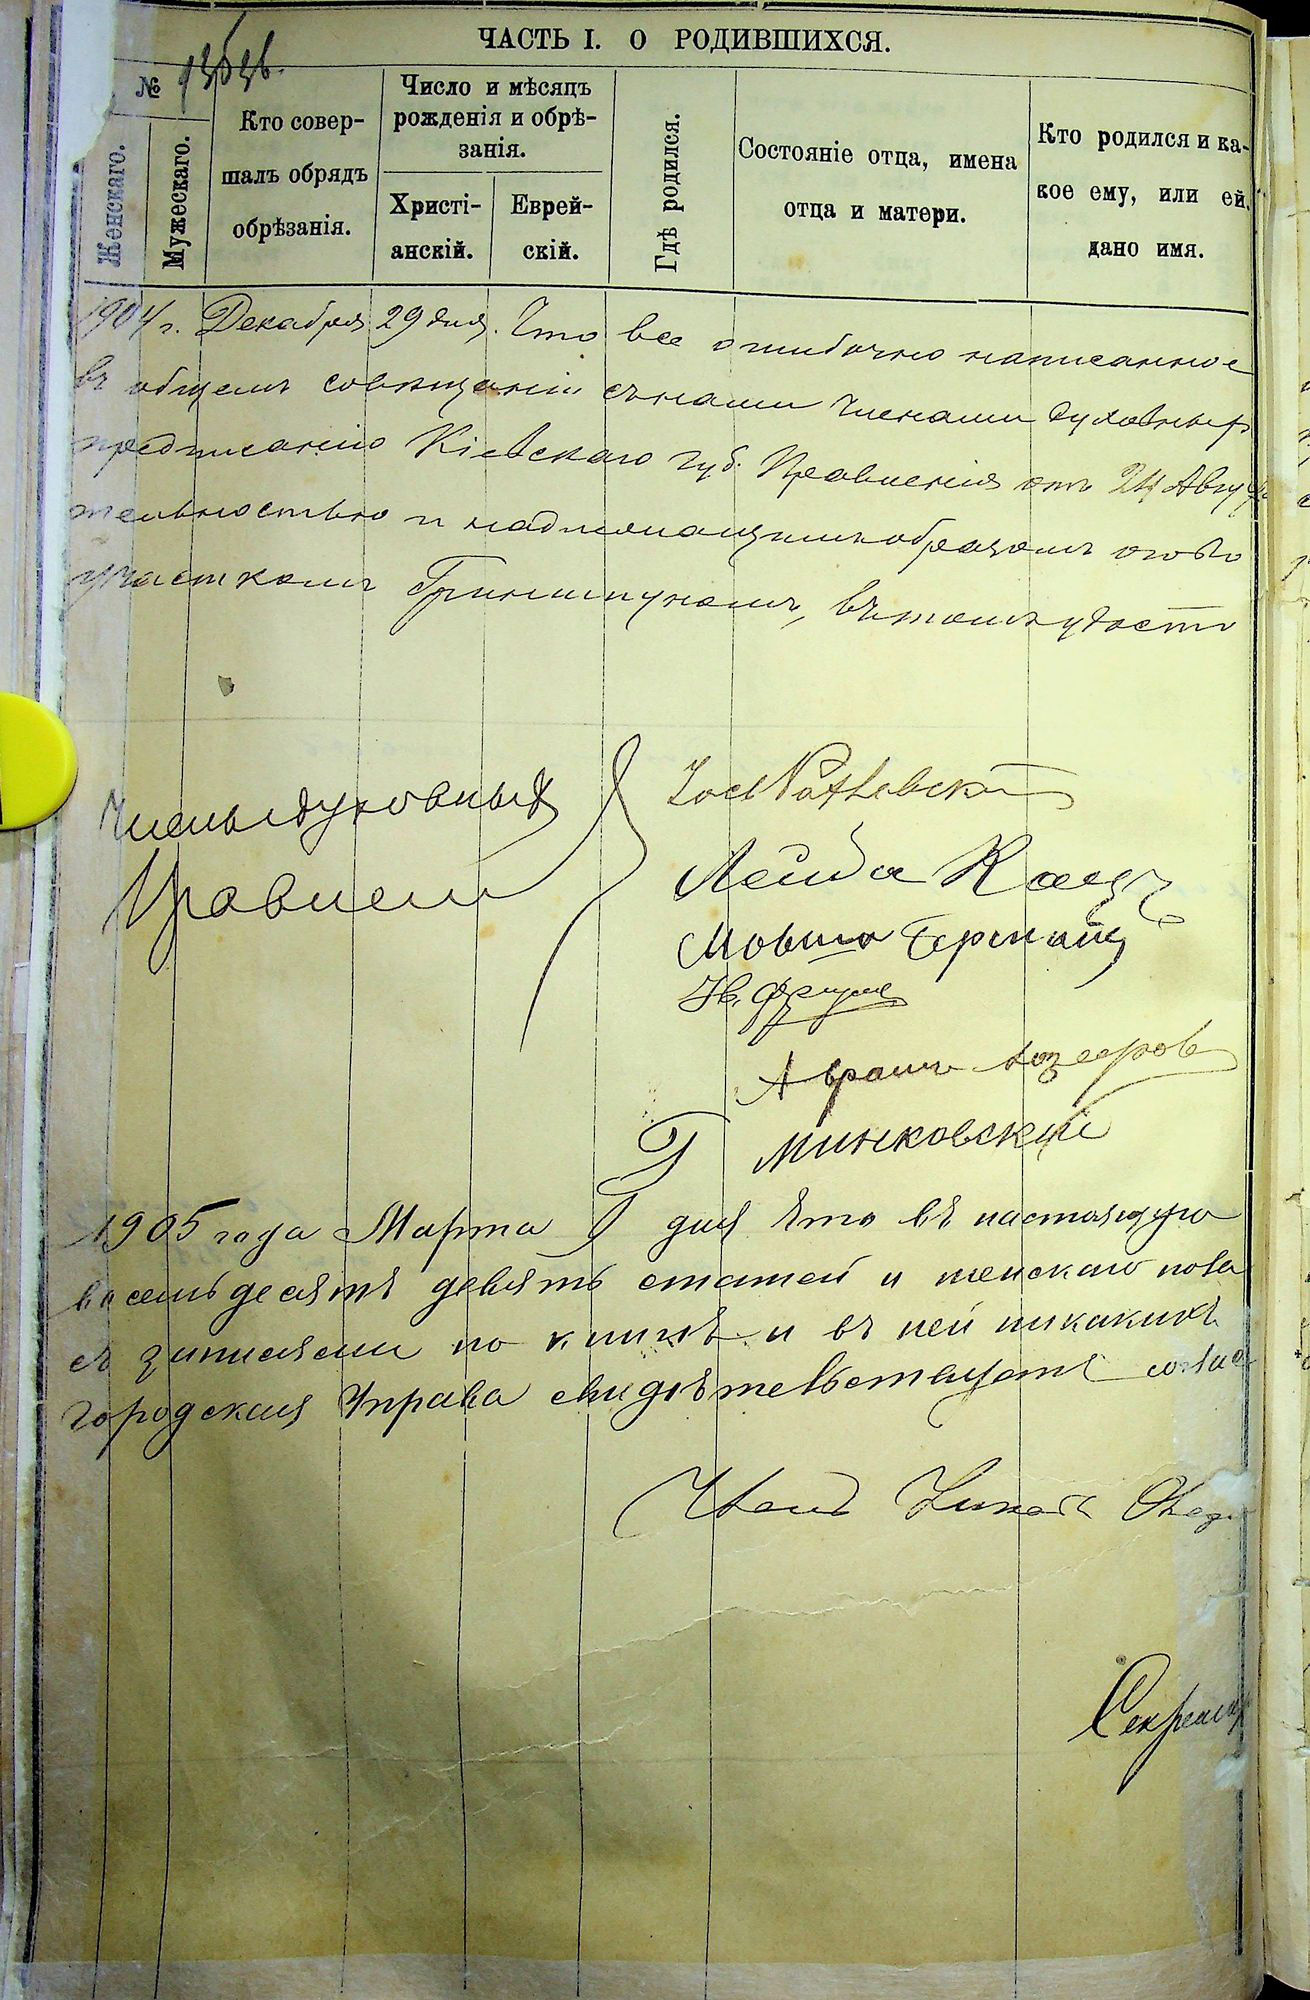 ЧАСТЬ I. О РОДИВШИХСЯ.
№
Женскаго.
Мужескаго.
Кто совер-
шалъ обрядъ
обрѣзанія.
Число и мѣсяцъ
рожденія и обрѣ-
занія.
Христі-
анскій.
Еврей-
скій.
Гдѣ родился.
Состояніе отца, имена
отца и матери.
Кто родился и ка-
кое ему, или ей,
дано имя.
1904 г. Декабря 29 дня. Что все ошибочно написанное
въ общемъ совѣщаніи съ нами Членами духовныхъ
предписанію Кіевскаго Губ. Правленія отъ 24 Авгу
тельностью и надлежащимъ образомъ огово
участкомъ Гринштукомъ, въ томъ удосто
Члены духовныхъ
Правленій
Лейба Кацъ
Мовша
Аврамъ
Г Минковскій
1905 года Марта 9 дня Что въ настоящую
восемьдесятъ девять статей и женскаго пола
съ записями по книгѣ и въ ней никакихъ
городская Управа свидѣтельствуетъ
Членъ
Секретарь